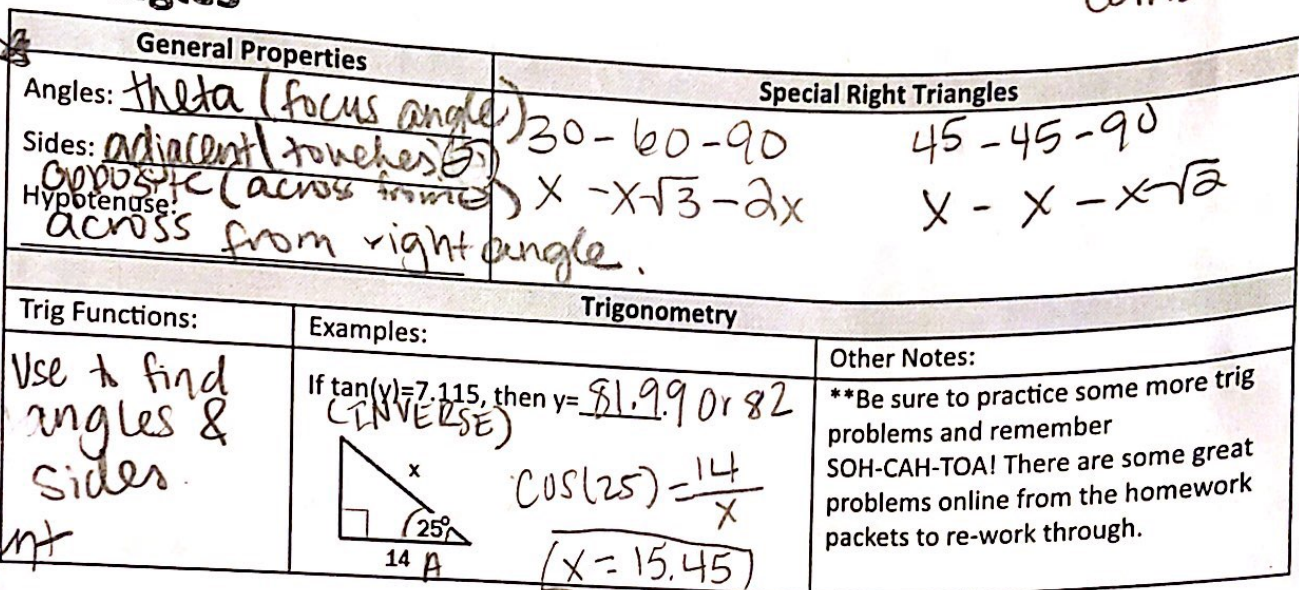 General Properties
Angles: theta (focus angle)
Sides: adjacent (touches θ)
opposite (across from θ)
Hypotenuse:
across from right angle.
Special Right Triangles
30-60-90
45-45-90
x - x√3 - 2x
x - x - x√2
Trigonometry
Trig Functions:
Use to find
angles &
sides
Examples:
If tan(y)=7.115, then y= 81.99 or 82
(INVERSE)
x
25°
14 A
cos(25) = 14/x
x = 15.45
Other Notes:
**Be sure to practice some more trig
problems and remember
SOH-CAH-TOA! There are some great
problems online from the homework
packets to re-work through.